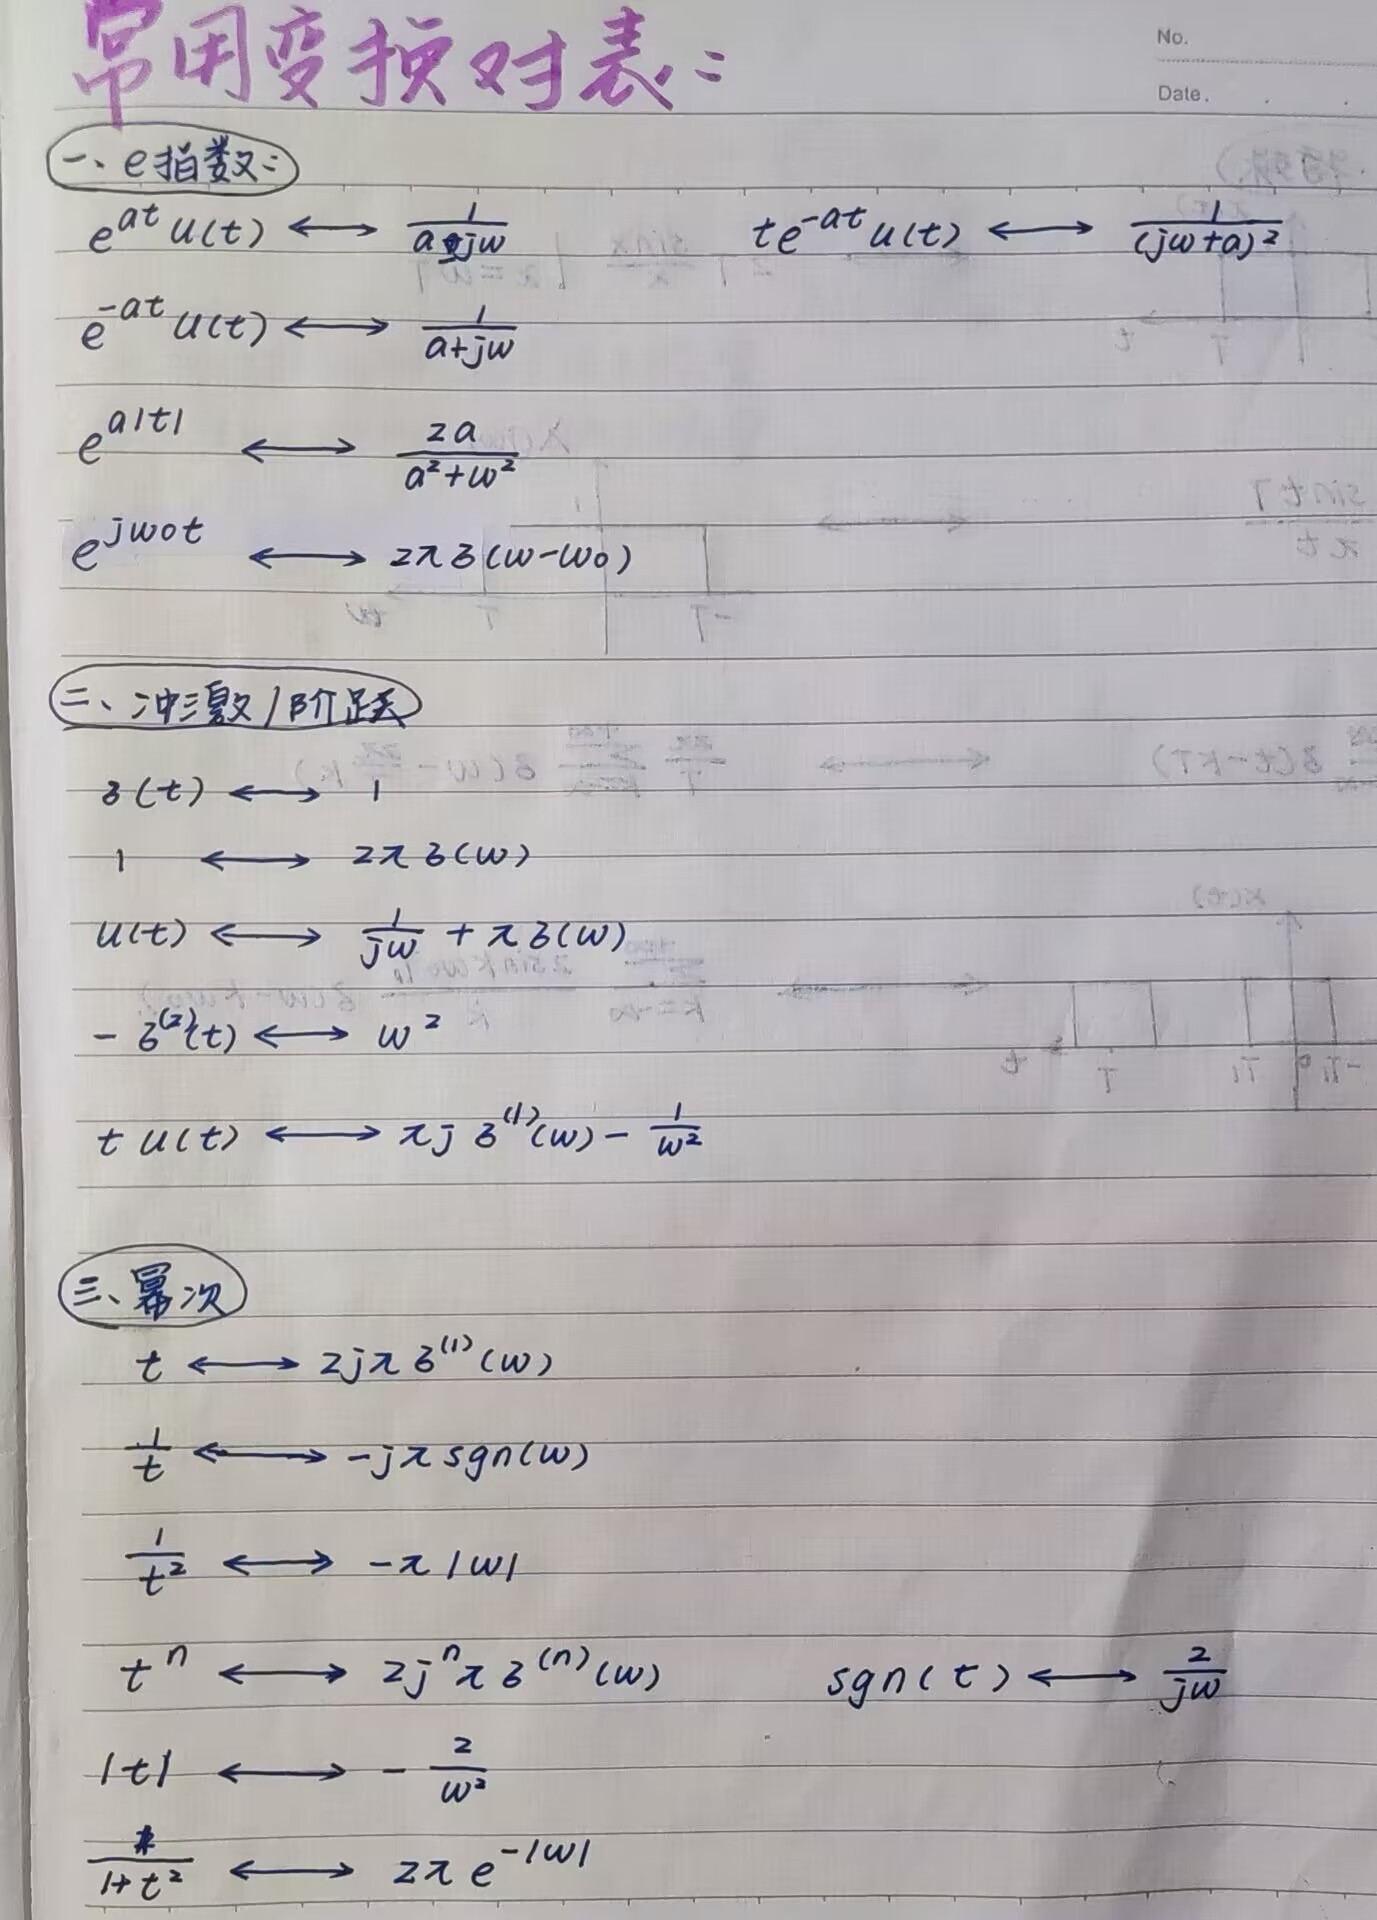 常用变换对表:
No.
Date.
一、e指数:
e^{at} u(t) ⟷ 1/(a-jω)    te^{-at} u(t) ⟷ 1/(jω+a)^2
e^{-at} u(t) ⟷ 1/(a+jω)
e^{a|t|} ⟷ 2a/(a²+ω²)
e^{jω0t} ⟷ 2πδ(ω-ω0)
二、冲激/阶跃
δ(t) ⟷ 1
1 ⟷ 2πδ(ω)
u(t) ⟷ 1/(jω) + πδ(ω)
-δ^{(2)}(t) ⟷ ω²
t u(t) ⟷ πj δ^{(1)}(ω) - 1/ω²
三、幂次
t ⟷ 2jπδ^{(1)}(ω)
1/t ⟷ -jπ sgn(ω)
1/t² ⟷ -π|ω|
t^n ⟷ 2j^n πδ^{(n)}(ω)    sgn(t) ⟷ 2/(jω)
|t| ⟷ -2/ω²
/(1+t²) ⟷ 2π e^{-|ω|}